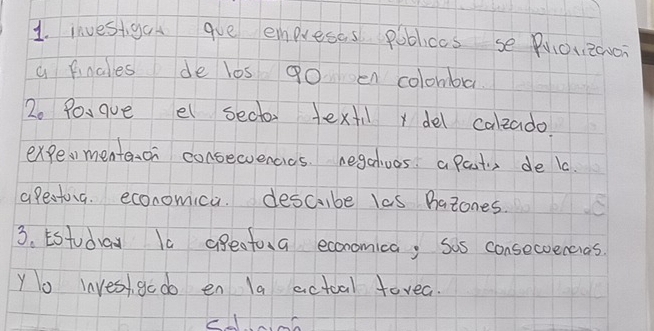 1. investigar que empresas públicas se Priorizaron
a finales de los 90 en colombia.
2. Porque el sector textil y del calzado.
experimentaron consecuencias negativas a partir de la
apertura economica. describe las Razones.
3. Estudiar la apertura economica, sus consecuencias.
y lo investigado en la actual tarea.
Solución